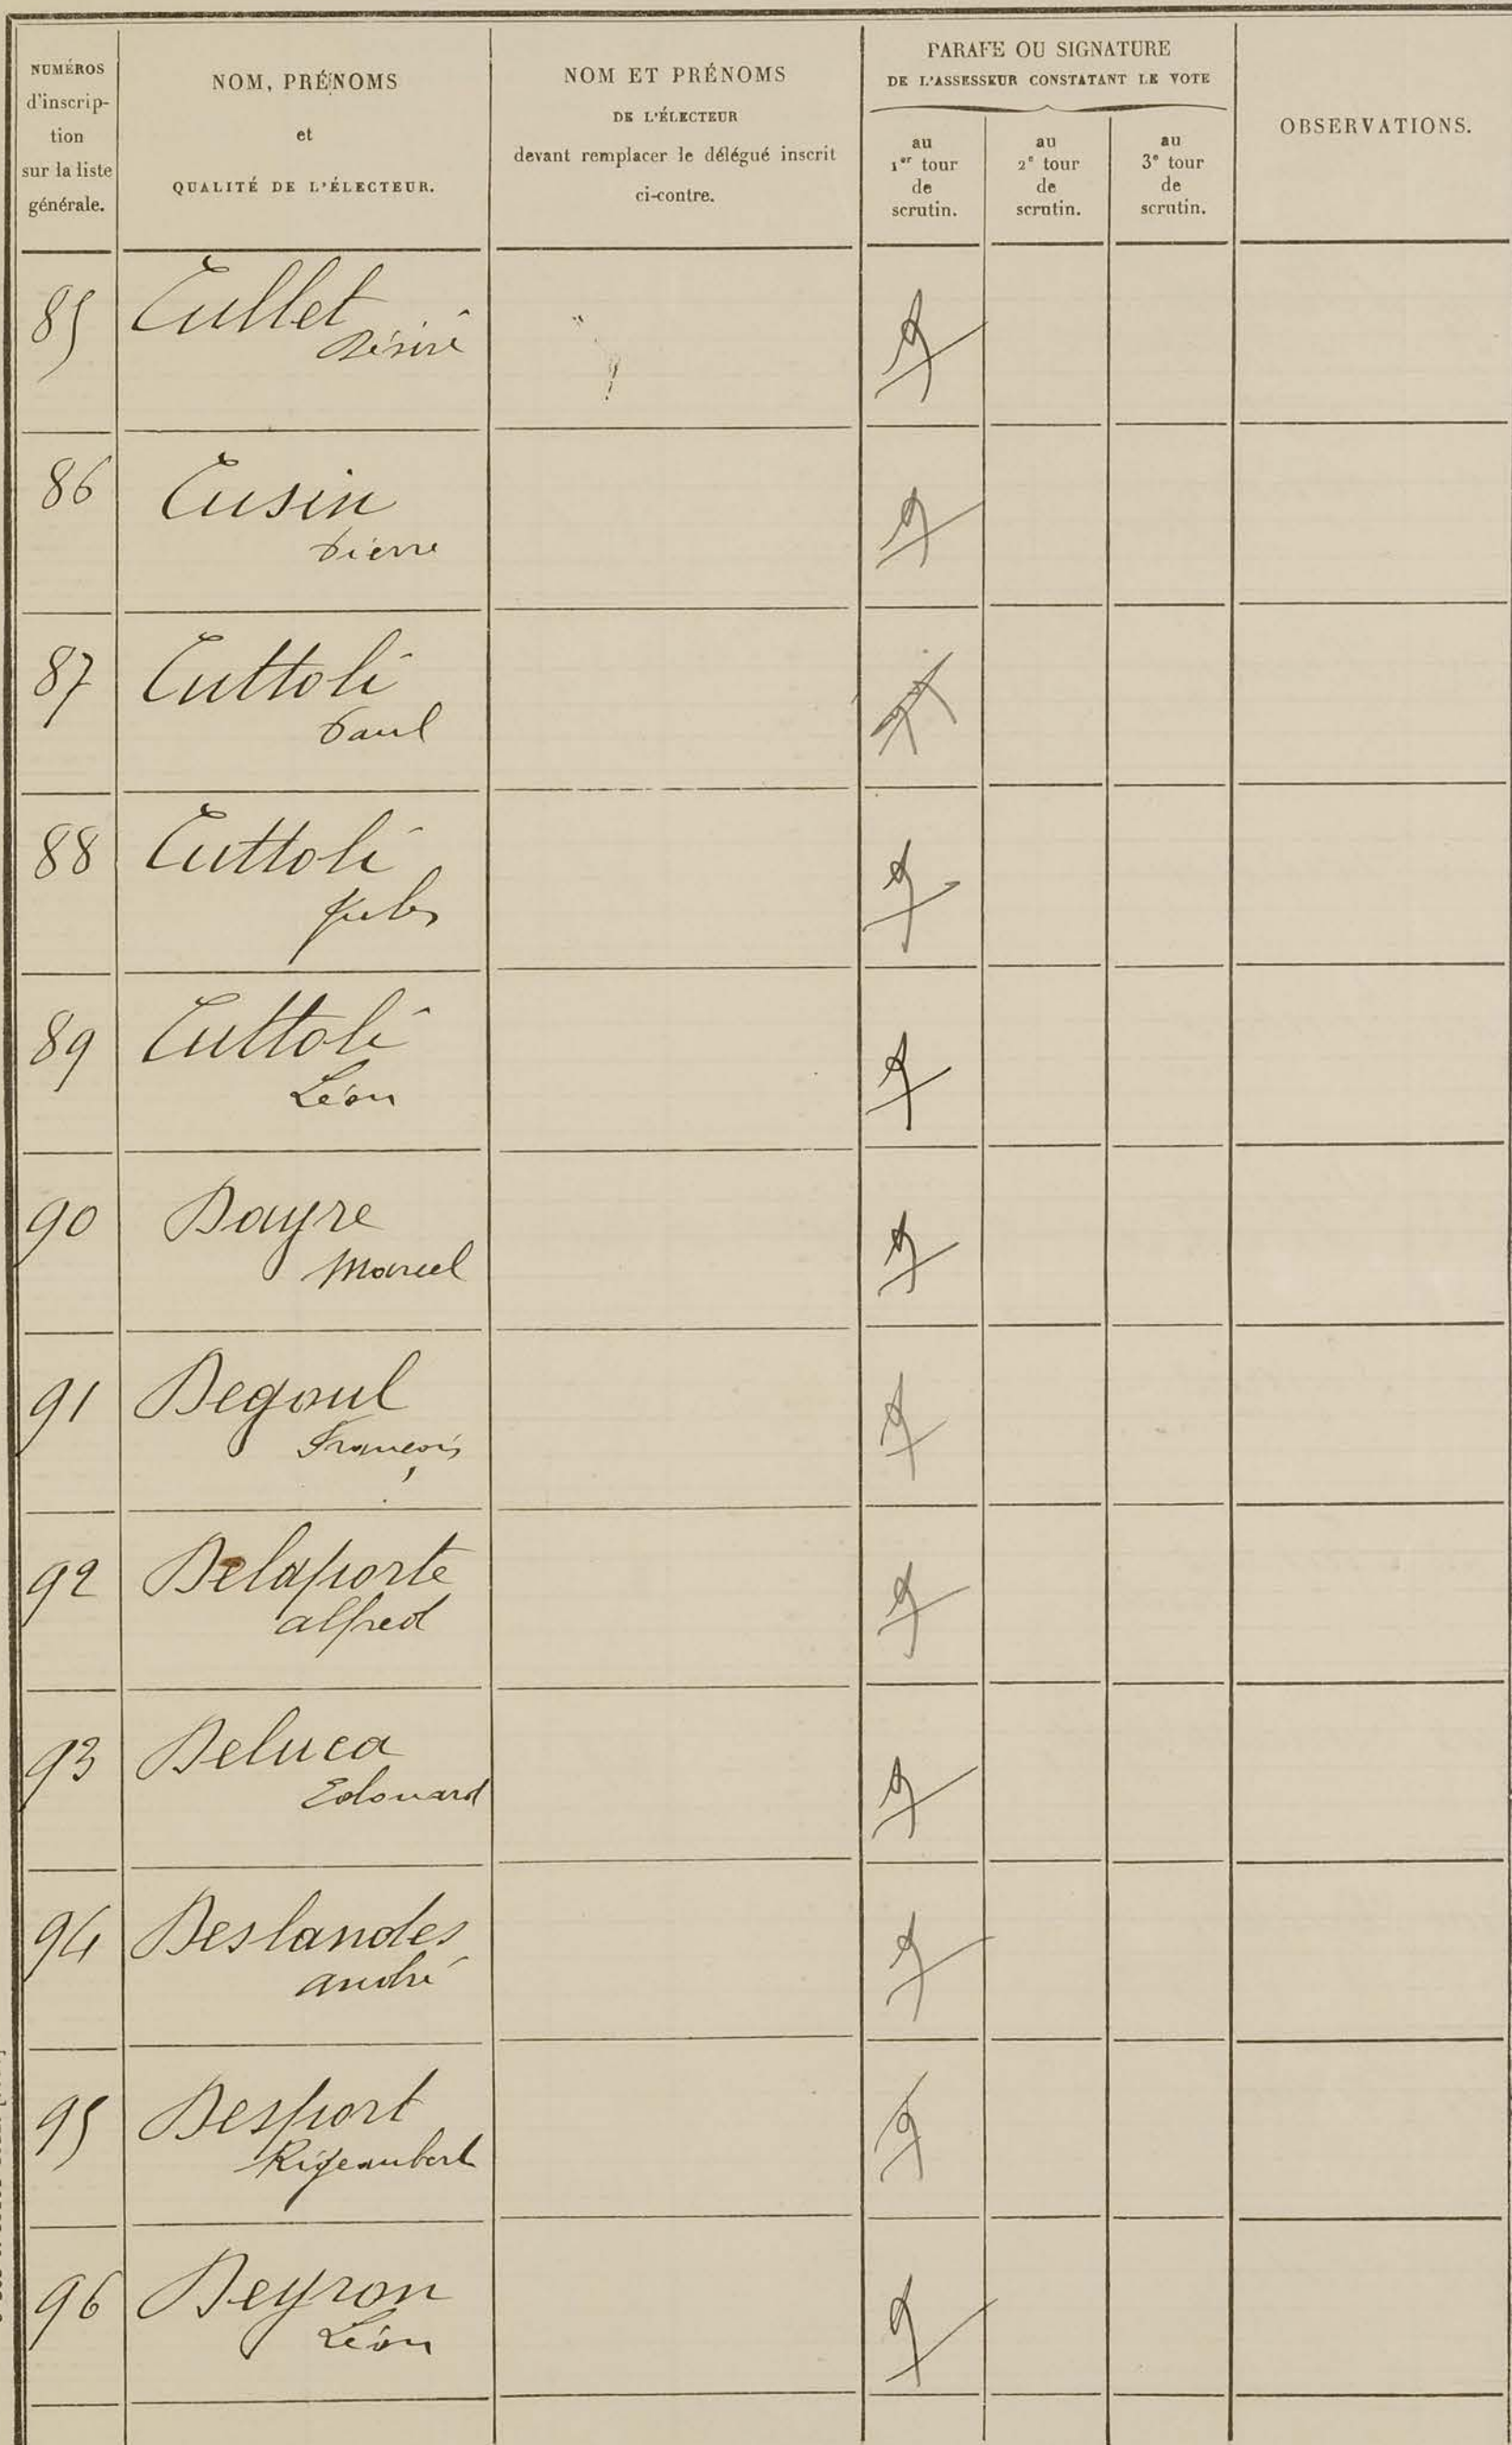 NUMÉROS
d'inscrip-
tion
sur la liste
générale.
NOM, PRÉNOMS
et
QUALITÉ DE L'ÉLECTEUR.
NOM ET PRÉNOMS
DE L'ÉLECTEUR
devant remplacer le délégué inscrit
ci-contre.
PARAFE OU SIGNATURE
DE L'ASSESSEUR CONSTATANT LE VOTE
au
1er tour
de
scrutin.
au
2e tour
de
scrutin.
au
3e tour
de
scrutin.
OBSERVATIONS.
85 Cullet
Désiré
86 Cusin
Pierre
87 Cuttoli
Paul
88 Cuttoli
Jules
89 Cuttoli
Léon
90 Dayre
Marcel
91 Degoul
François
92 Delaporte
alfred
93 Deluca
Edouard
94 Deslandes
andré
95 Desport
96 Deyron
Léon